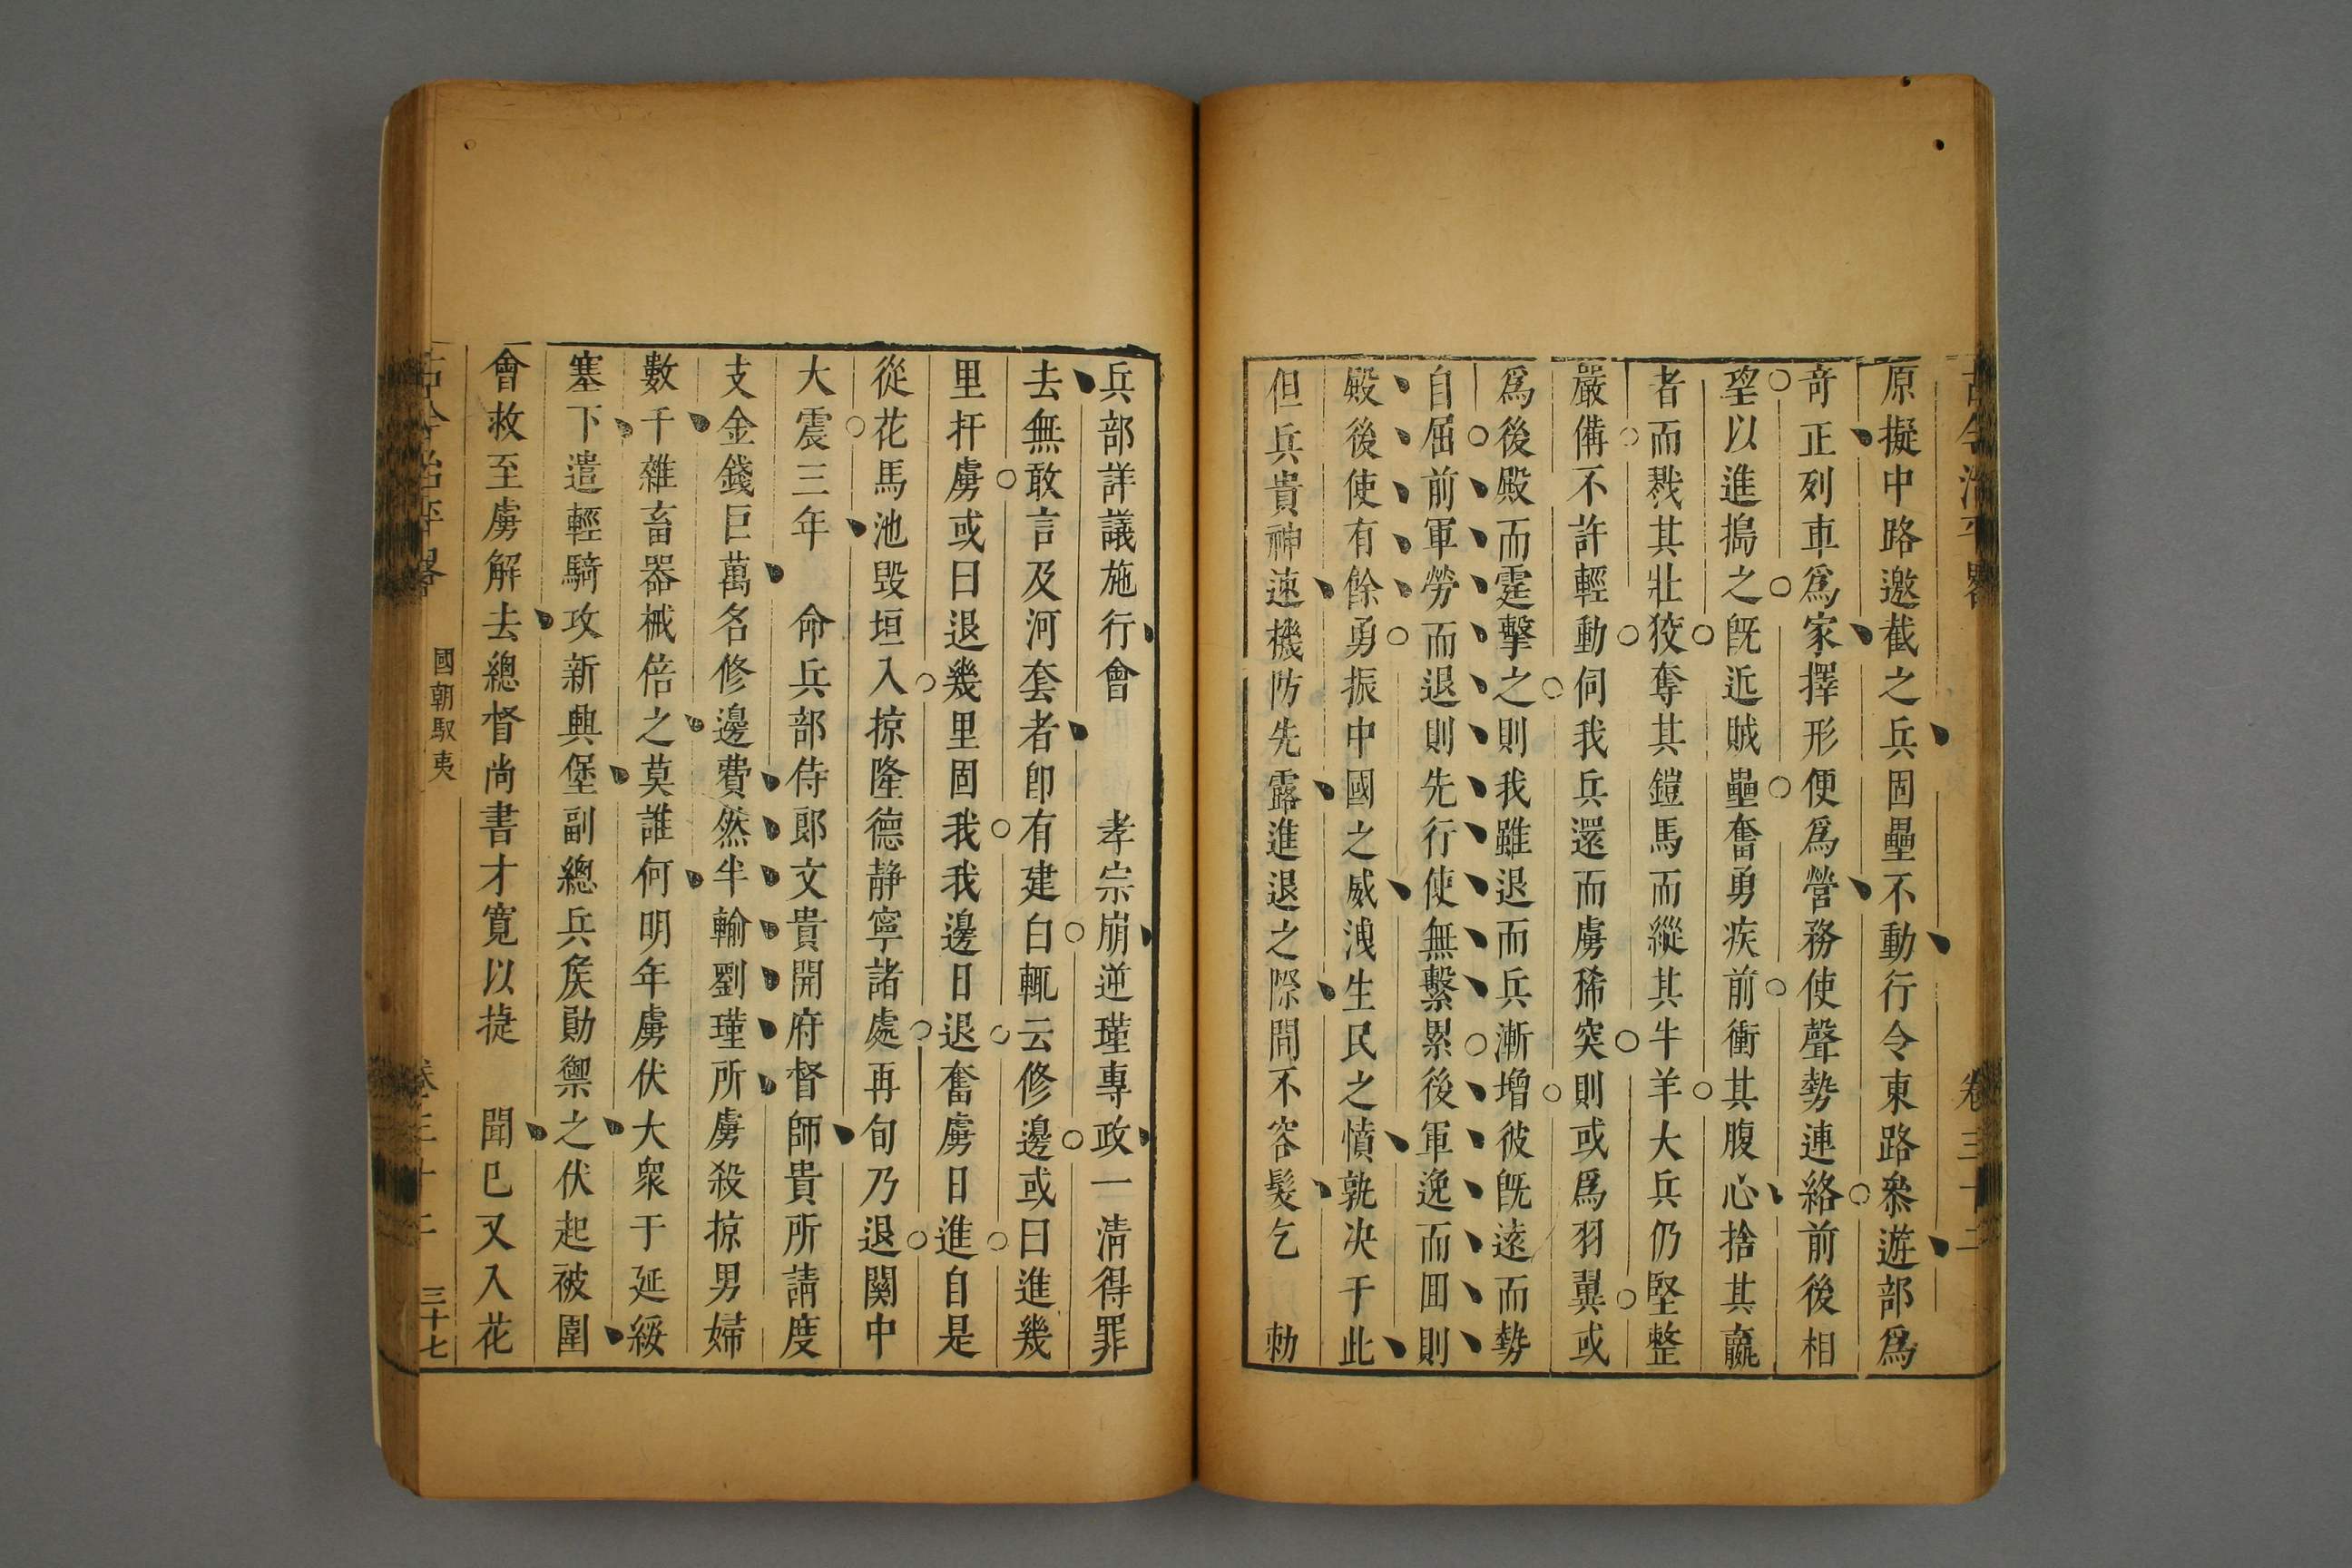 古今治平畧
卷三十二
原擬中路邀截之兵固壘不動行令東路叅遊部爲
竒正列車爲家擇形便爲營務使聲勢連絡前後相
望以進搗之旣近賊壘奮勇疾前衝其腹心捨其羸
者而戮其壯狡奪其鎧馬而縱其牛羊大兵仍堅整
嚴備不許輕動伺我兵還而虜狶突則或爲羽翼或
爲後殿而霆擊之則我雖退而兵漸增彼旣遠而勢
自屈前軍勞而退則先行使無繫累後軍逸而囬則
殿後使有餘勇振中國之威洩生民之憤孰决于此
但兵貴神速機防先露進退之際間不容髮乞 勅
兵部詳議施行會 孝宗崩逆瑾專政一清得罪
去無敢言及河套者卽有建白輒云修邊或曰進幾
里扞虜或曰退幾里固我我邊日退奮虜日進自是
從花馬池毀垣入掠隆德靜寧諸處再旬乃退關中
大震三年 命兵部侍郎文貴開府督師貴所請度
支金錢巨萬名修邊費然半輸劉瑾所虜殺掠男婦
數千雜畜器械倍之莫誰何明年虜伏大衆于延綏
塞下遣輕騎攻新興堡副總兵矦勛禦之伏起被圍
會救至虜解去總督尚書才寬以捷 聞巳又入花
古今治平畧
國朝馭夷
卷三十二
三十七